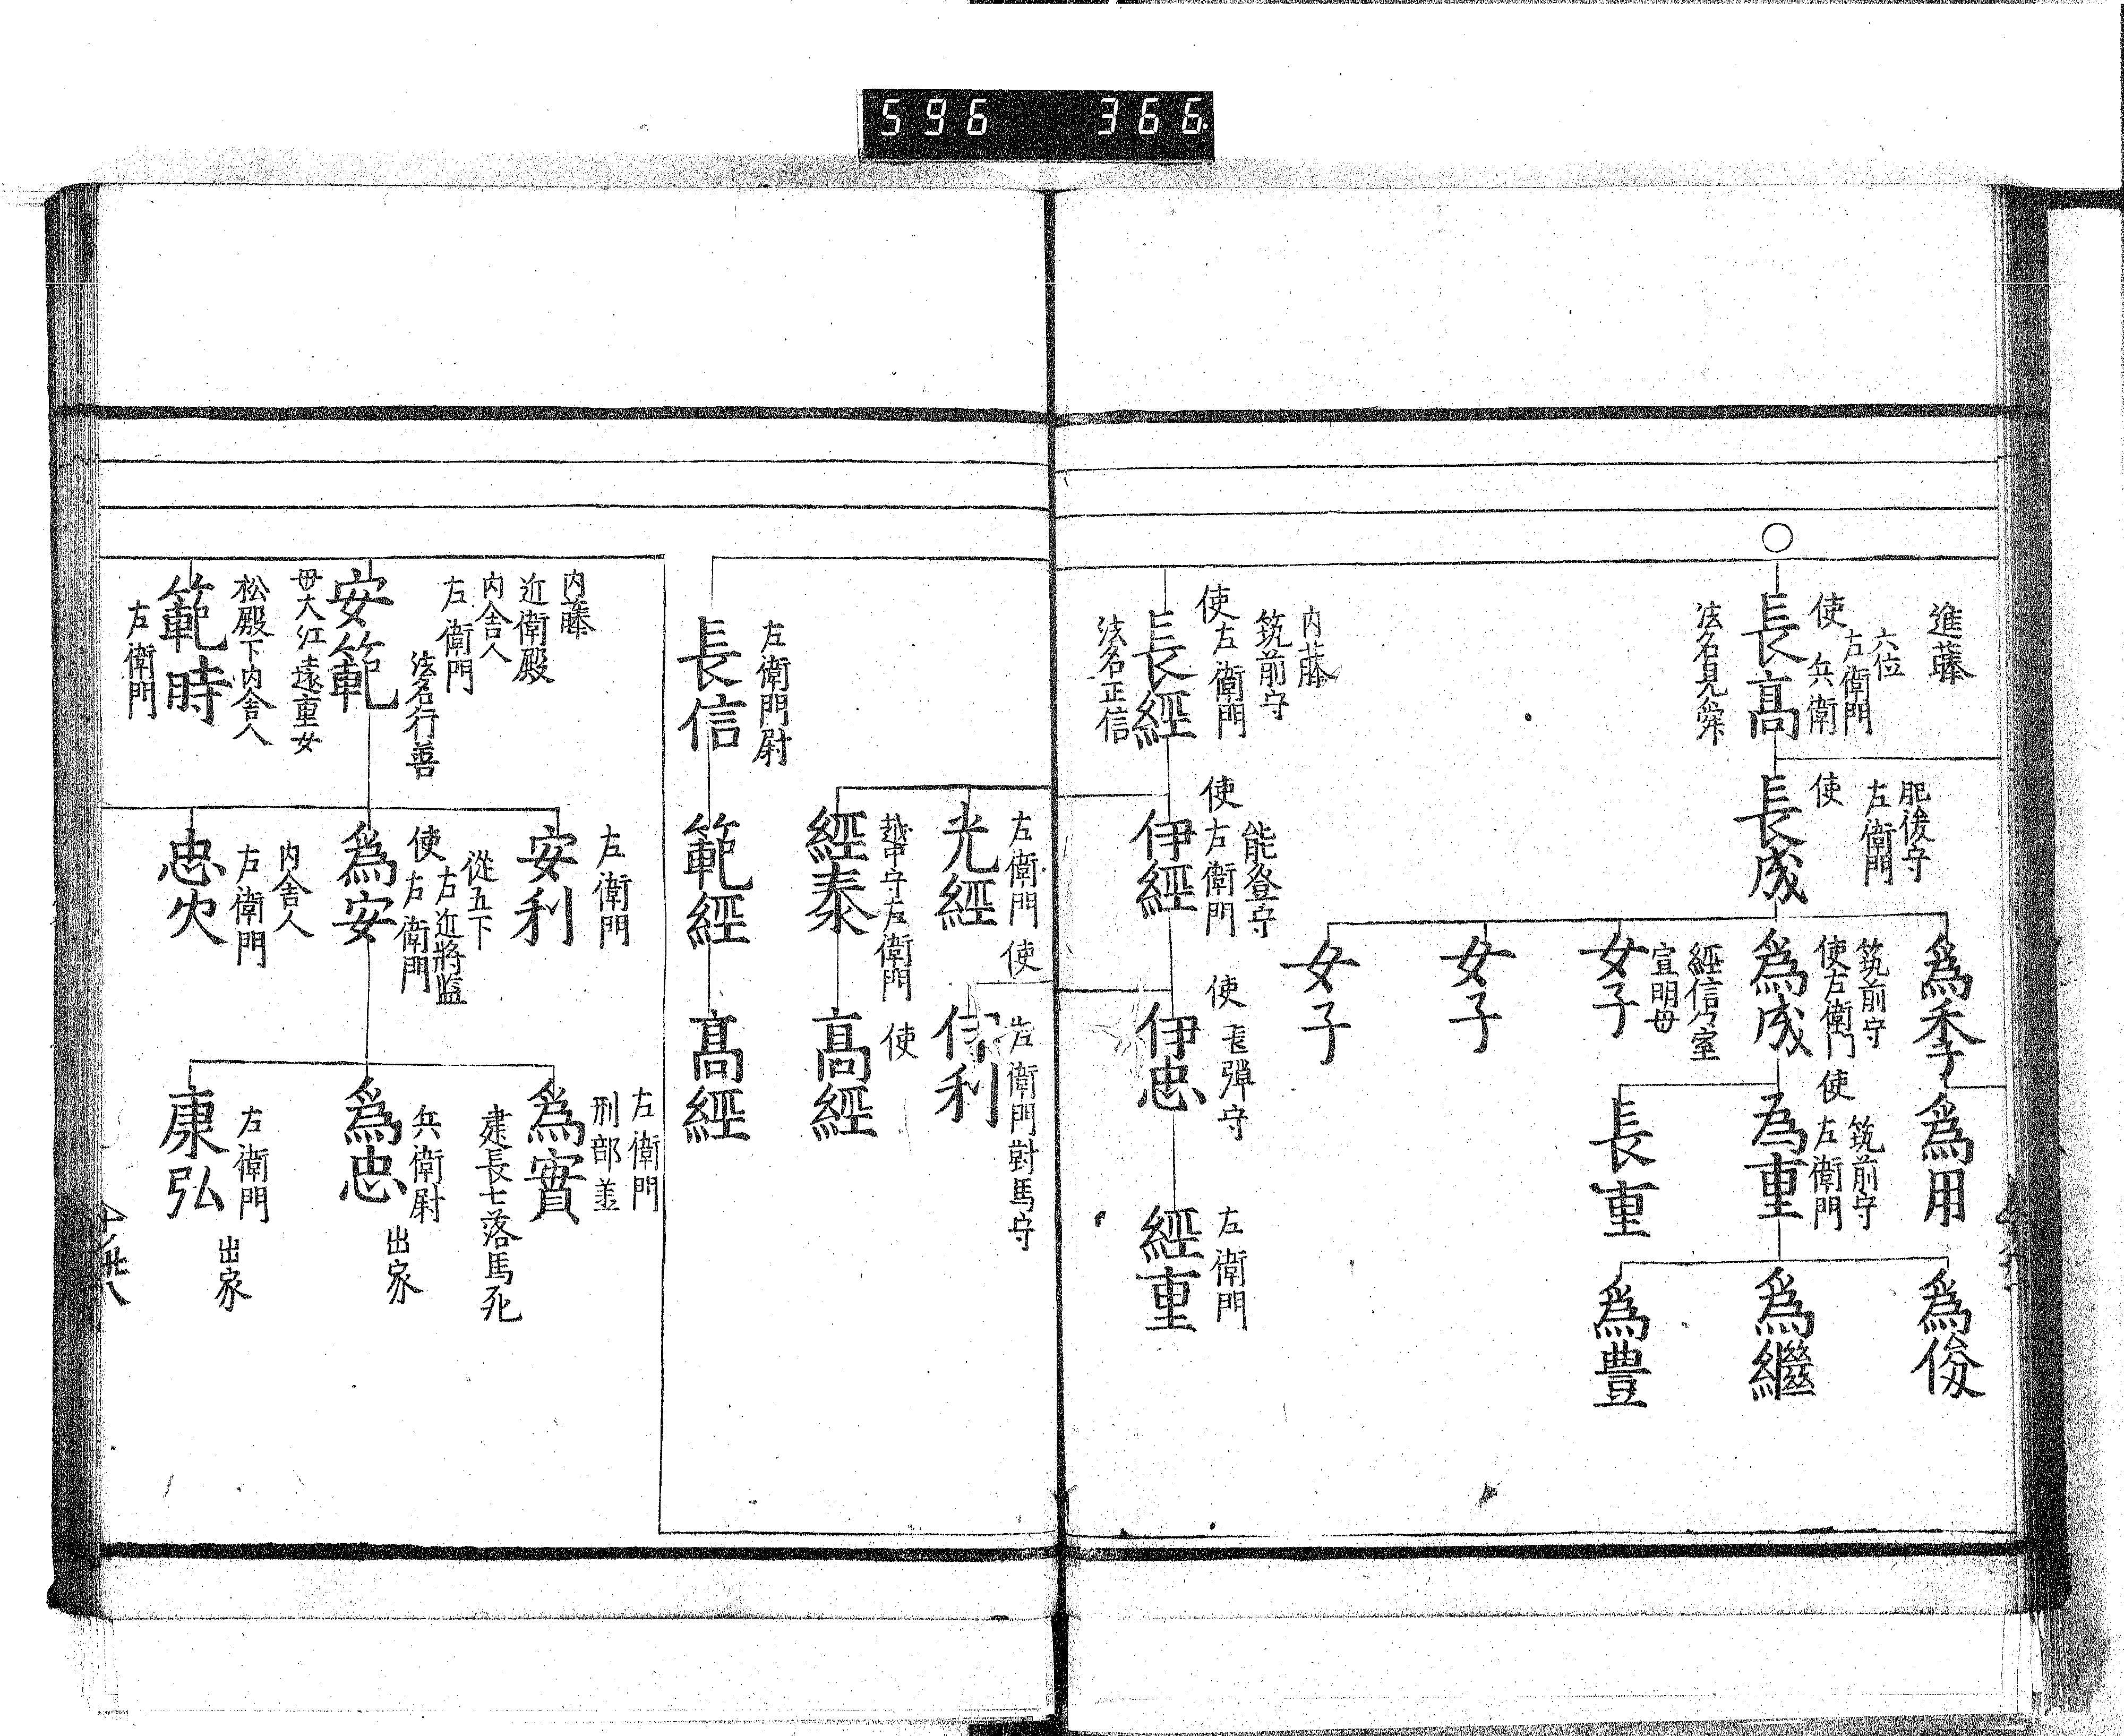 596 366
進藤
六位
左衛門
使 兵衛
長高
法名見舜
肥後守
左衛門
使
長成
為季
筑前守
使左衛門
為成
經信公室
宣明母
女子
女子
女子
為用
筑前守
使 左衛門
為重
長重
為俊
為繼
為豊
内藤
筑前守
使左衛門
長經
法名正信
能登守
使左衛門
伊經
使
伊忠
左衛門
經重
左衛門 使
光經
左衛門對馬守
伊利
越中守左衛門
經泰
使
高經
左衛門尉
長信
範經
高經
内藤
近衛殿
内舎人
左衛門
法名行善
安範
母大江遠重女
松殿下内舎人
範時
左衛門
左衛門
安利
從五下
右近將監
使左衛門
為安
内舎人
左衛門
忠火
左衛門
刑部並
為實
建長七落馬死
兵衛尉
出家
為忠
左衛門
出家
康弘